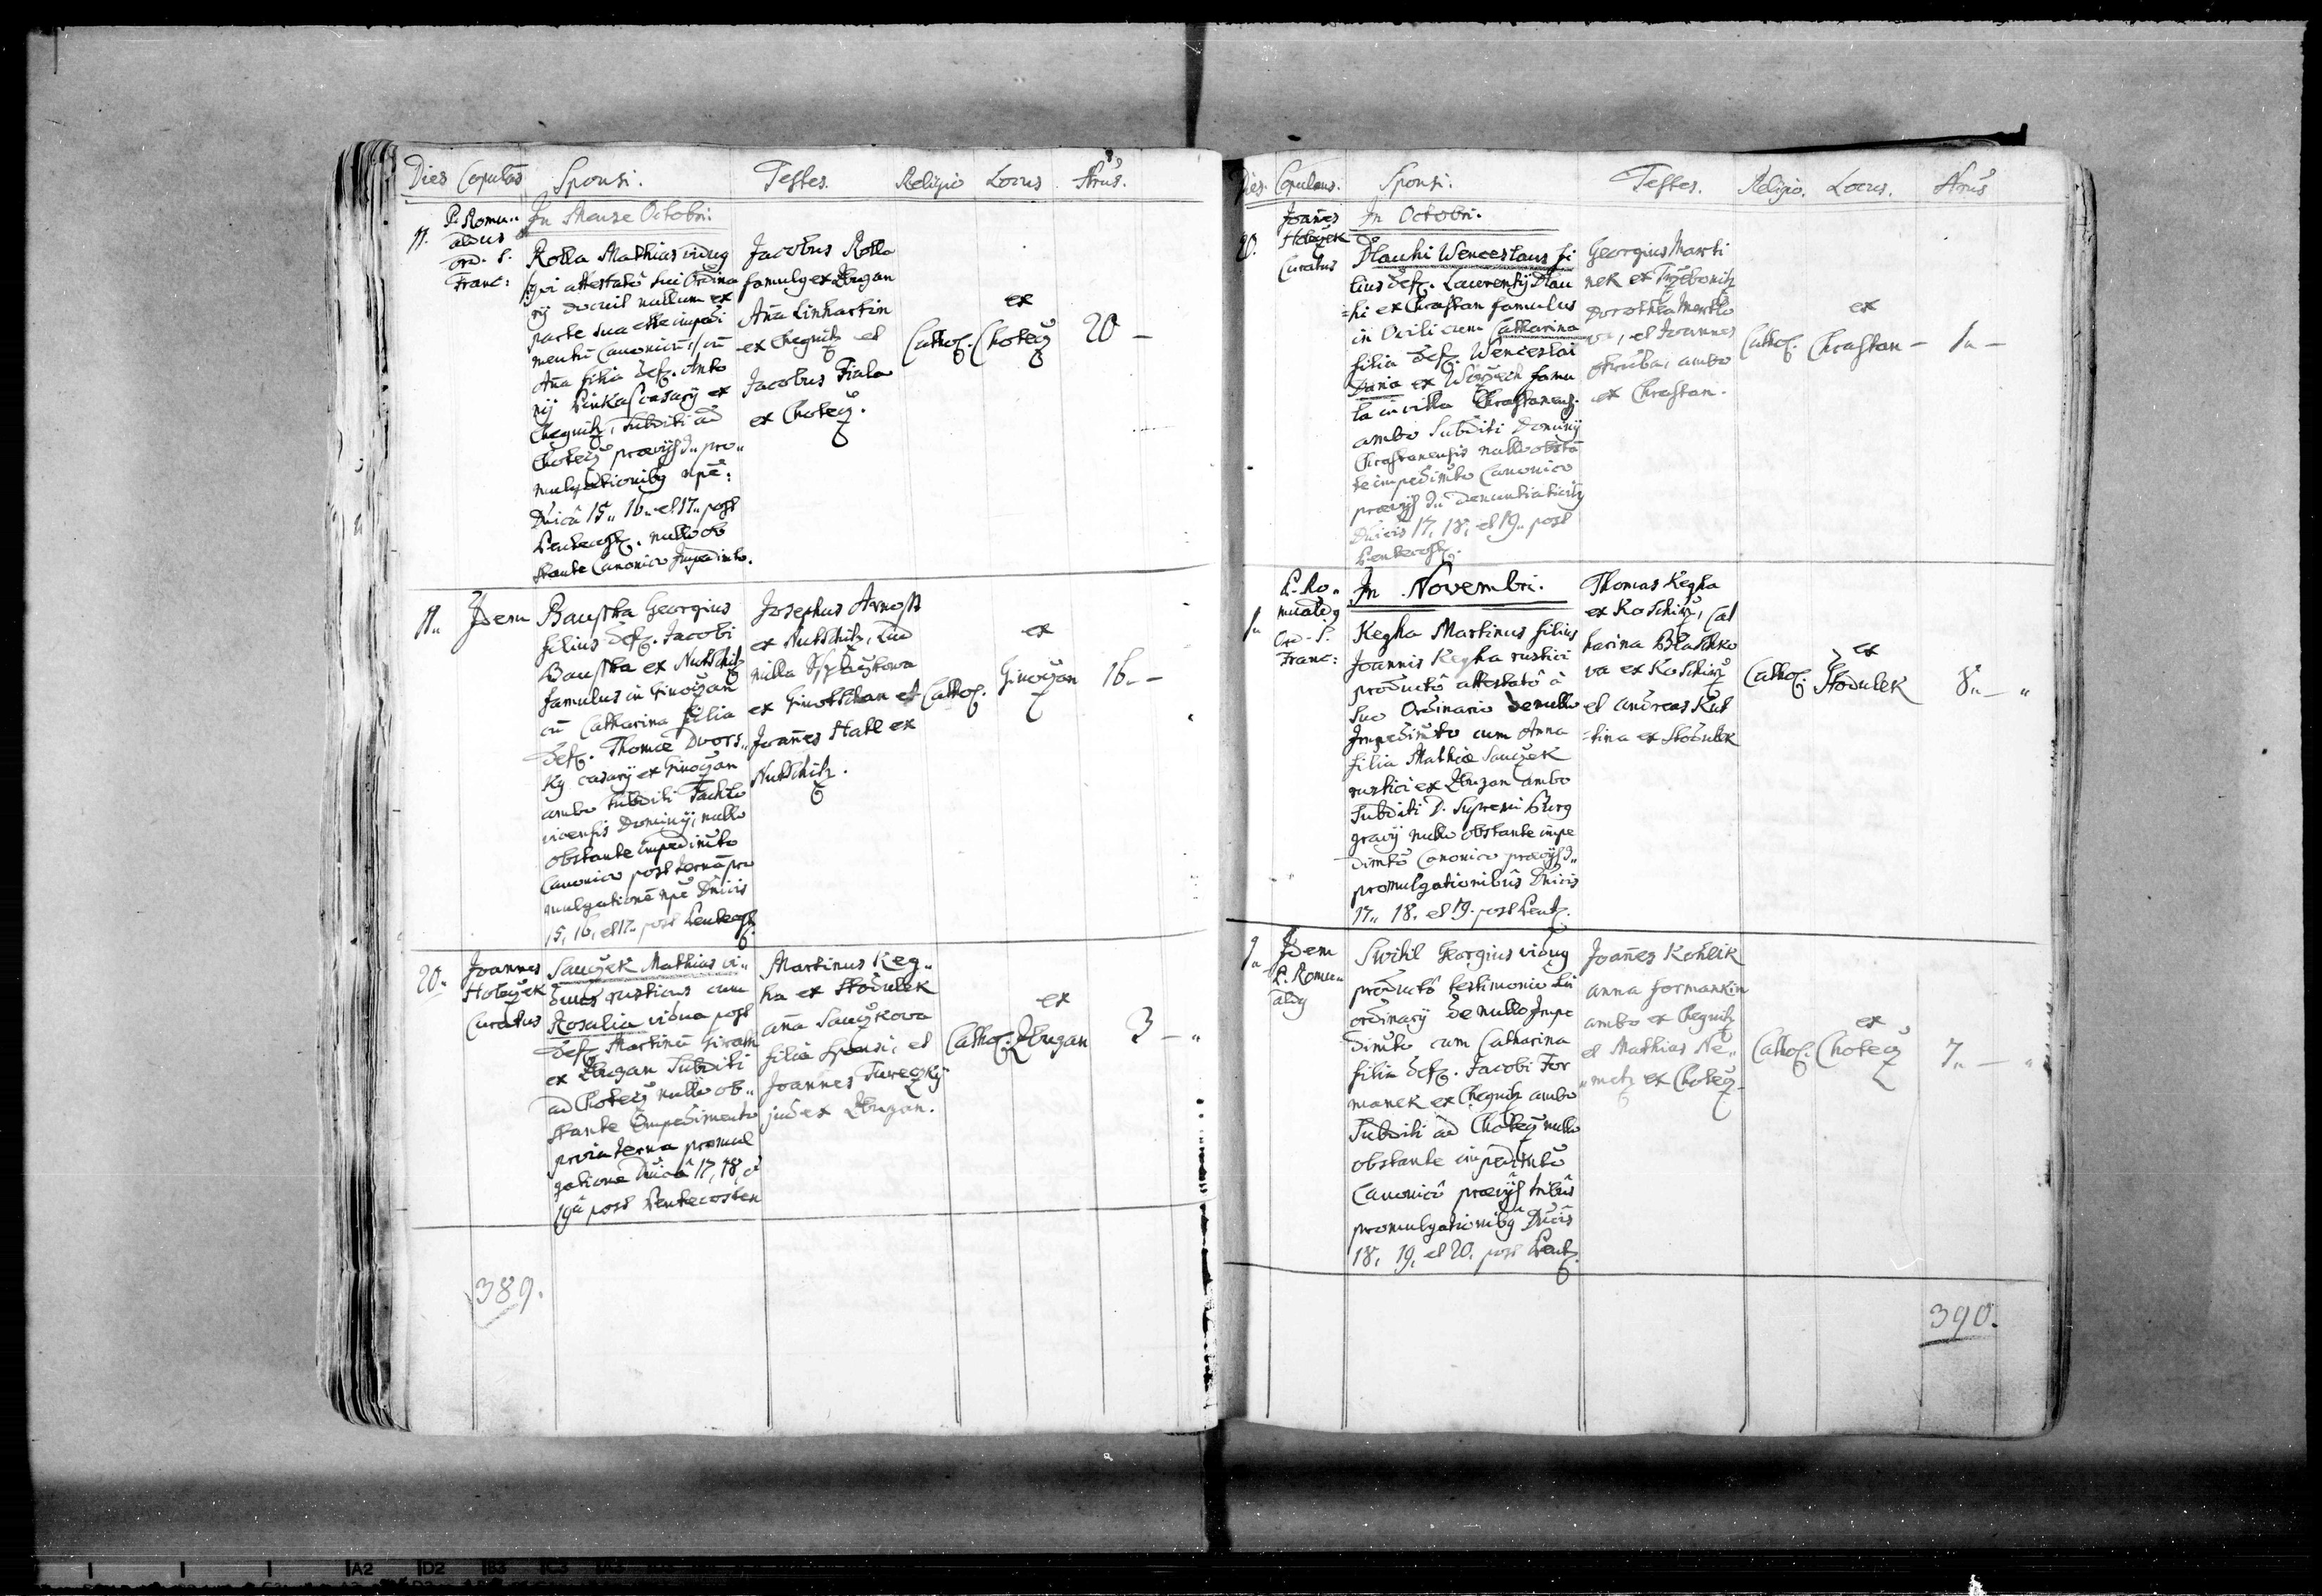 Dies Copulās Sponsi. Testes. Religio Locus Nrus.
11. P. Romu„
aldus
Ord. S.
Franc:
In Mense Octobri.
Rolla Mathias viduq
qui attestatô sui Ordina
rij docuit nullum ex
parte sua esse impedi
mentū Canonicū, cū
Aña filia defq. Anto
nij Pinkas casarij ex
Chegnitz, Subditi ad
Chotecz praevijs 3„ pro„
mulgationibq npē:
Dnicâ 15„ 16„ et 17„ post
Pentecost. nullo ob
stante Canonico Impedimto.
Jacobus Rolla
famulq ex Zbuzan
Aña Linhartin
ex Chegnitz et
Jacobus Fiala
ex Chotecz.
Cathol.
ex
Chotecz
20 —
11„ Idem
Baustka Georgius
filius defq. Jacobi
Baustka ex Nutschitz
famulus in Ginoczan
cū Catharina filia
defq. Thomae Dvors„
ky casarij ex Ginoczan
ambo Subditi Tachlo
vicensis Dominij, nullo
obstante impedimto
Canonico post ternā pro
mulgationē npē Dnicis
15, 16, et 17„ post Pentecost.
Josephus Arnost
ex Nutschitz, Lud
milla
ex Ginotschan et
Joañes Hall ex
Nutschitz.
Cathol.
ex
Ginoczan
16„ —
20„ Joannes
Holeczek
Curatus
Sauczek Mathias vi„
duus rusticus cum
Rosalia vidua post
defq. Martinū Girash
ex Zbuzan Subditi
ad Chotecz nullo ob„
stante Impedimento
praevia terna promul
gatione Dnicâ 17, 18, et
19â post Pentecosten
Martinus Keg„
ha ex Stodulek
aña Sauczkova
filia Sponsi, et
Joannes Tureczky
judex Zbuzan.
Cathol.
ex
Zbuzan
3 — „
389.
Dies. Copulans. Sponsi. Testes. Religio. Locus. Nrus
20. Joañes
Holeczek
Curatus
In Octobri.
Dlauhi Wenceslaus fi
lius defq. Laurentij Dlau
=hi ex Chrastan famulus
in Ovili cum Catharina
filia defq. Wenceslai
ex famu
la in villa Chrastanens.
ambo Subditi Dominij
Chrastanensis nullo obstā
te impedimto Canonico
praevijs 3„ denuntiationibq
Dnicis 17, 18, et 19„ post
Pentecost.
Georgius Marti
nek ex Trzebonitz
Dorothea
va, et Joannes
Otruba, ambo
ex Chrastan.
Cathol.
ex
Chrastan —
1„ —
1„ P. Ro„
mualdq
Ord. S.
Franc:
In Novembri.
Kegha Martinus filius
Joannis Kegha rustici
productô attestatô à
suo Ordinario de nullo
Impedimto cum Anna
filia Mathiae Sauczek
rustici ex Zbuzan ambo
Subditi D. Supremi Burg
gravij nullo obstante impe
dimtô Canonico praevijs 3„
promulgationibus Dnicis
17„ 18, et 19. post Pent.
Thomas Kegha
ex Koschirz, Cat
harina Blaschko
va ex Koschirz
et andreas Kut
=tina ex Stodulek
Cathol.
ex
Stodulek
8„ — „
9„ Idem
P. Romu„
aldq
Swihl Georgius viduq
productô testimonio sui
ordinarij de nullo Impe
dimto cum Catharina
filia defq. Jacobi For
manek ex Chegnitz ambo
Subditi ad Chotecz nullo
obstante impedimtô
Canonicô praevijs tribus
promulgationibq Dnicis
18, 19, et 20. post Pent.
Joañes Kohlik
anna formankin
ambo ex Chegnitz
et Mathias Ne„
„metz ex Chotecz
Cathol.
ex
Chotecz
7„ — „
390.